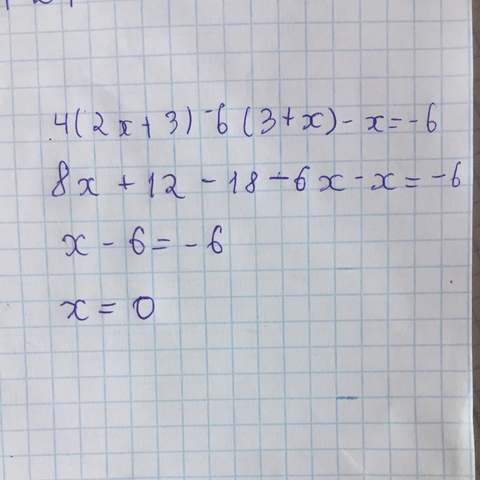 4(2x+3)-6(3+x)-x=-6
8x+12-18-6x-x=-6
x-6=-6
x=0